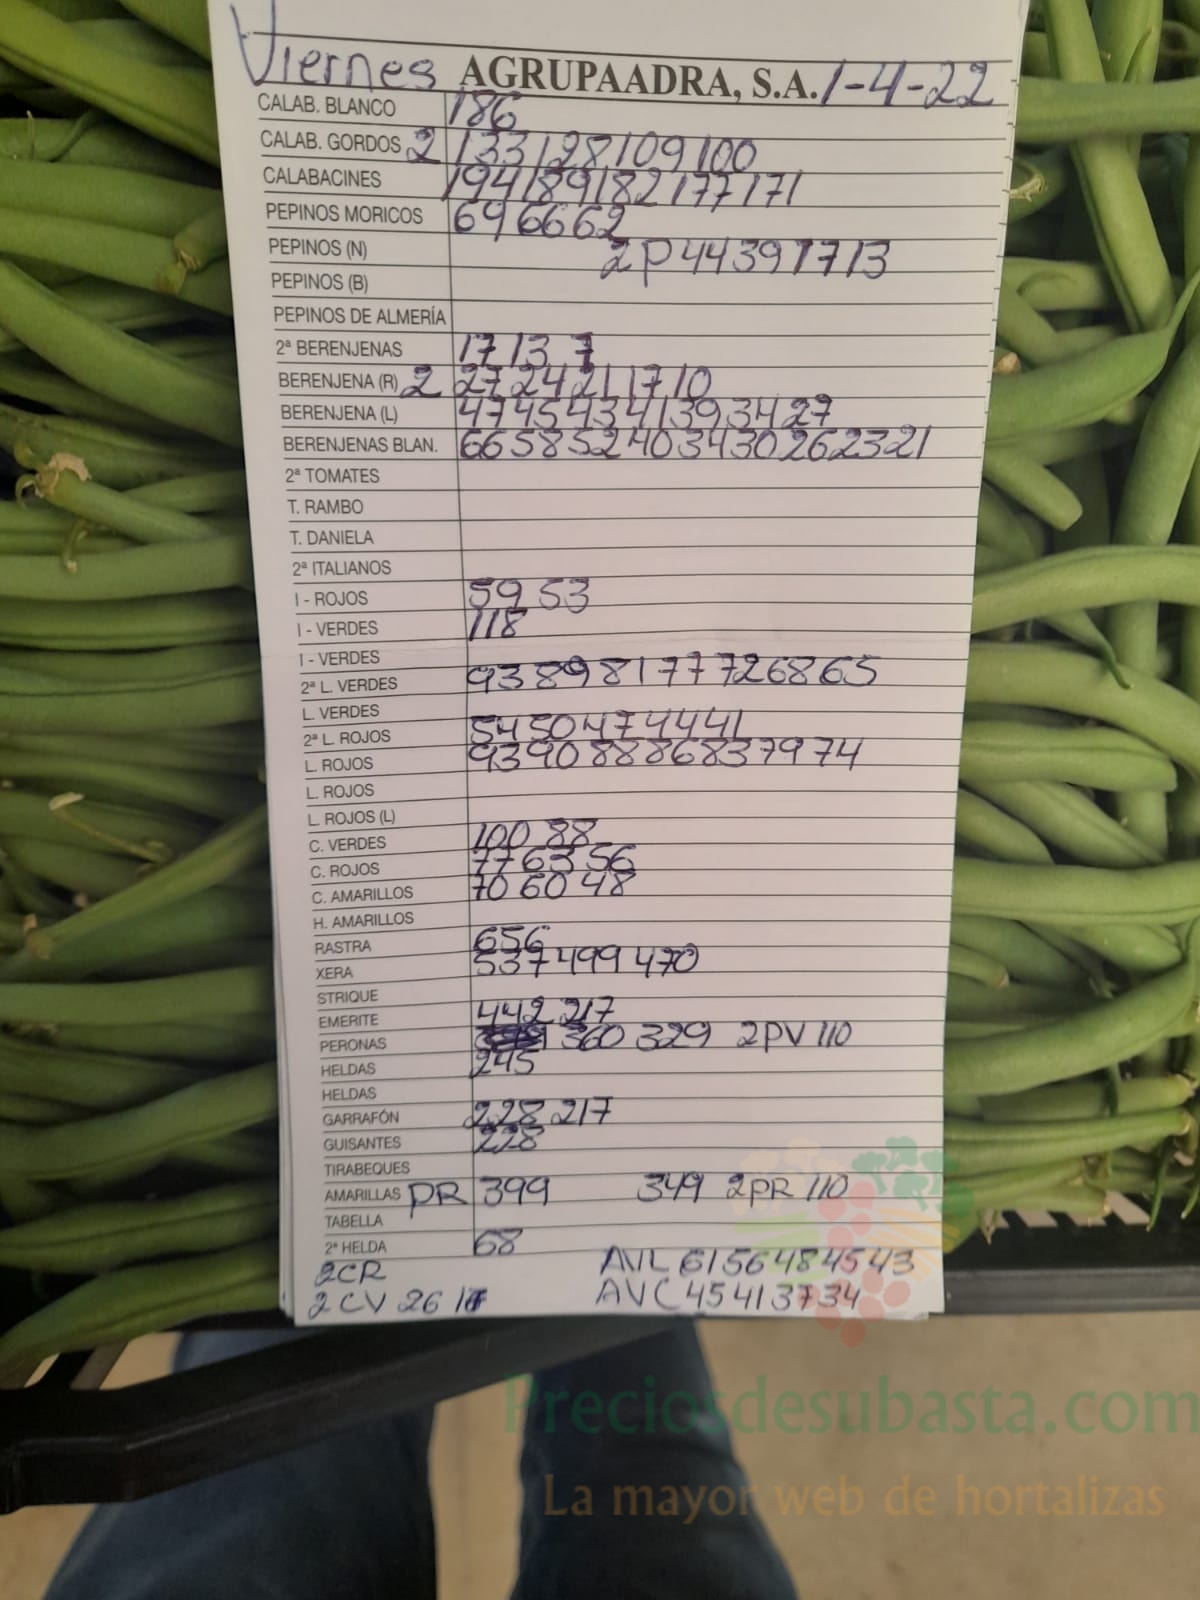 Viernes AGRUPAADRA, S.A. 1-4-22
CALAB. BLANCO 186
CALAB. GORDOS 2 133 128 109 100
CALABACINES 194 189 182 177 171
PEPINOS MORICOS 69 66 62
PEPINOS (N) 2P 44 39 17 13
PEPINOS (B)
PEPINOS DE ALMERÍA
2ª BERENJENAS 17 13 7
BERENJENA (R) 2 27 24 21 17 10
BERENJENA (L) 47 45 43 41 39 34 27
BERENJENAS BLAN. 66 58 52 40 34 30 26 23 21
2ª TOMATES
T. RAMBO
T. DANIELA
2ª ITALIANOS
I - ROJOS 59 53
I - VERDES 118
I - VERDES
2ª L. VERDES 93 89 81 77 72 68 65
L. VERDES
2ª L. ROJOS 54 50 47 44 41
L. ROJOS 93 90 88 86 83 79 74
L. ROJOS
L. ROJOS (L)
C. VERDES 100 88
C. ROJOS 77 63 56
C. AMARILLOS 70 60 48
H. AMARILLOS
RASTRA 656
XERA 537 499 470
STRIQUE
EMERITE 442 217
PERONAS 360 329 2PV 110
HELDAS 245
HELDAS
GARRAFÓN 228 217
GUISANTES 228
TIRABEQUES
AMARILLAS PR 399 349 2PR 110
TABELLA
2ª HELDA 68
2CR AVL 61 56 48 45 43
2CV 26 AVC 45 41 37 34
Preciosdesubasta.com
La mayor web de hortalizas